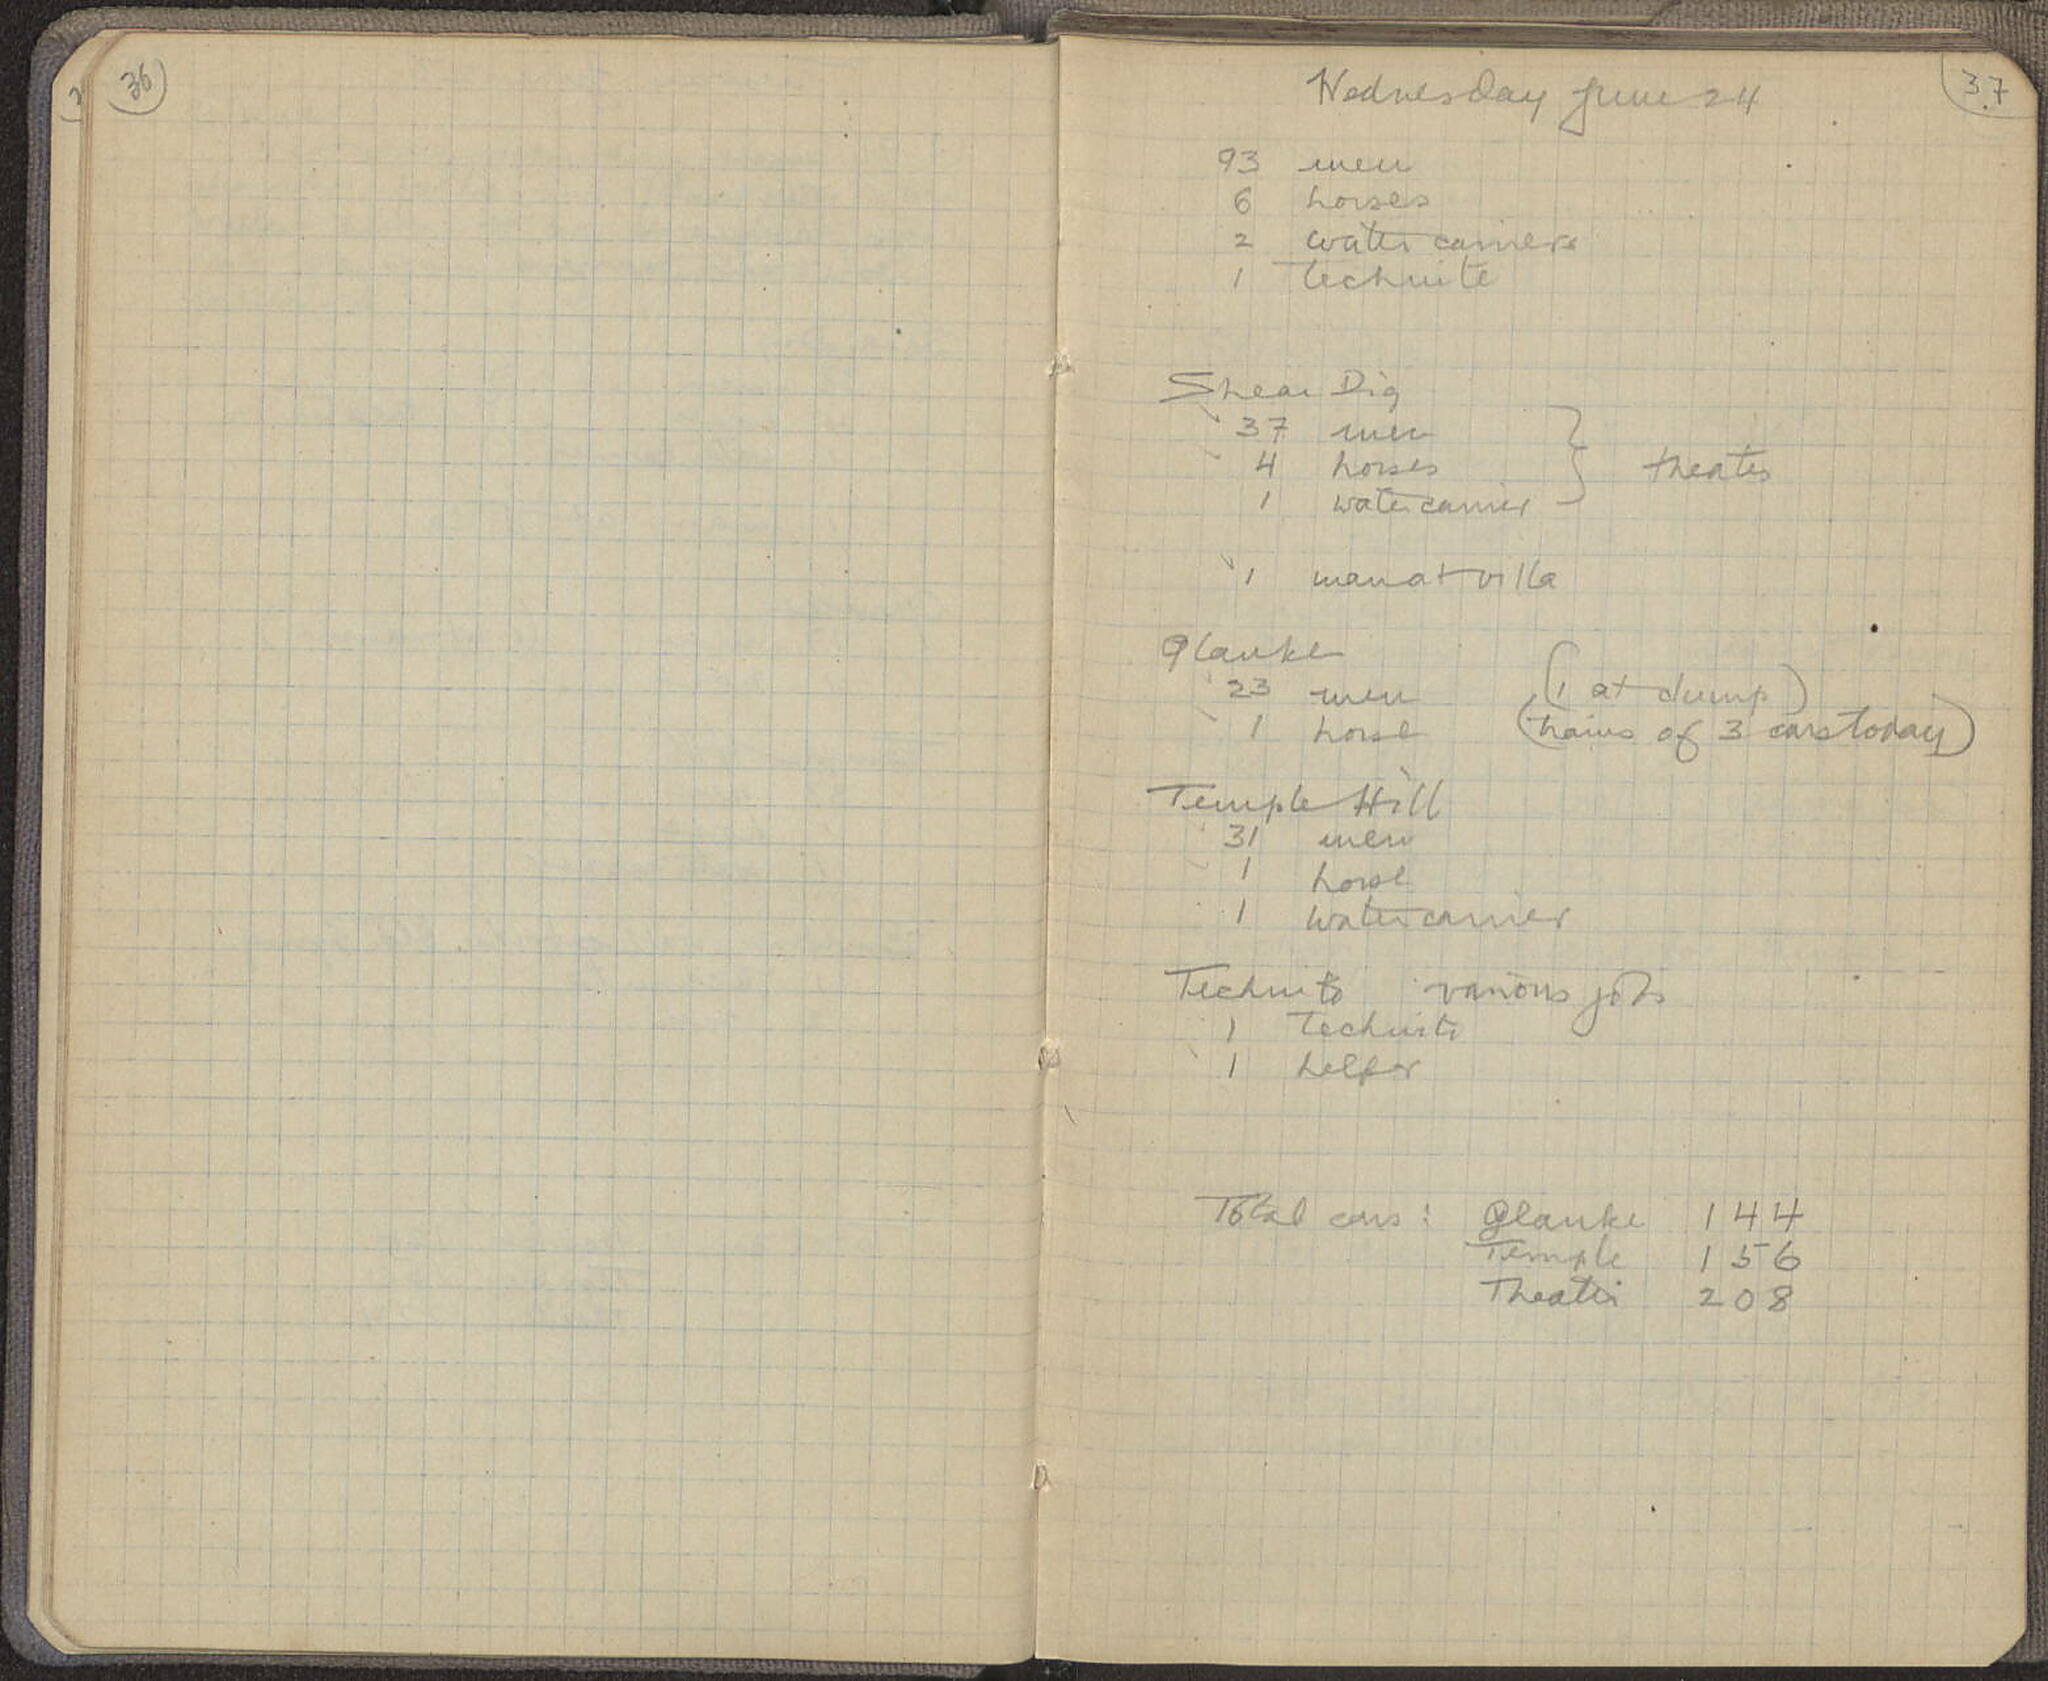 36
37
Wednesday June 24
93 men
6 horses
2 water carriers
1 technite
Shear Dig
37 men
4 horses
1 watercarrier
theater
1 man at villa
Glauke
23 men (1 at dump)
1 horse (trains of 3 cars today)
Temple Hill
31 men
1 horse
1 watercarrier
Technite various jobs
1 technite
1 helper
Total cars: Glauke 144
Temple 156
Theater 208